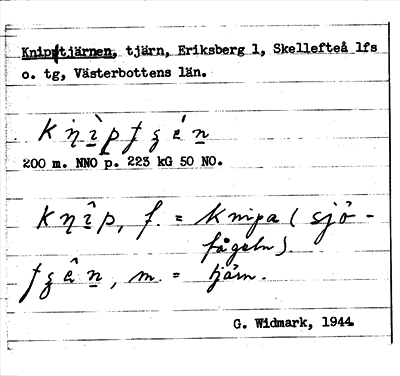 Kniptjärnen, tjärn, Eriksberg 1, Skellefteå lfs
o. tg, Västerbottens län.
200 m. NNO p. 223 kG 50 NO.
f. = Knipa (sjö-
fågeln).
m. = tjärn.
G. Widmark, 1944